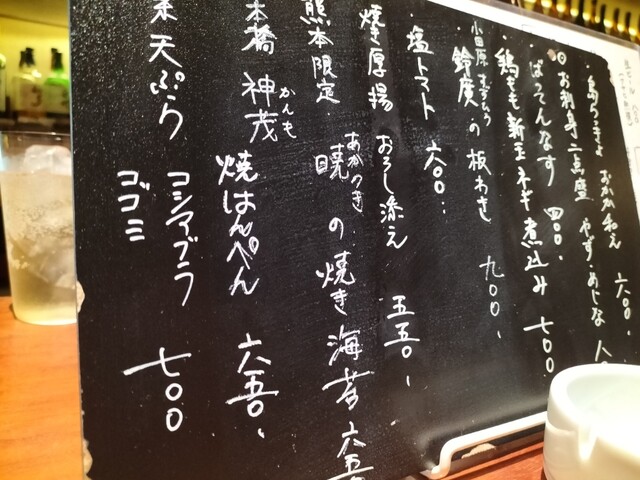 島らっきょ おかか和え 六〇〇、
お刺身二点盛 やず・あじな
ばってんなす 四〇〇、
鶏もも新玉ネギ煮込み 七〇〇
小田原 すずひろ
鈴廣の板わさ 九〇〇、
塩トマト 六〇〇、
焼き厚揚 おろし添え 五五〇、
熊本限定 あかつき
暁の焼き海苔 六五
本橋 神茂 かんも 焼はんぺん 六五〇、
天ぷら コシアブラ
コゴミ 七〇〇